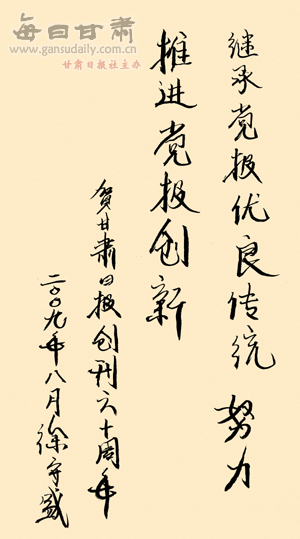 每日甘肃
www.gansudaily.com.cn
甘肃日报社主办
继承党报优良传统 努力
推进党报创新
贺甘肃日报创刊六十周年
二〇〇九年八月徐守盛